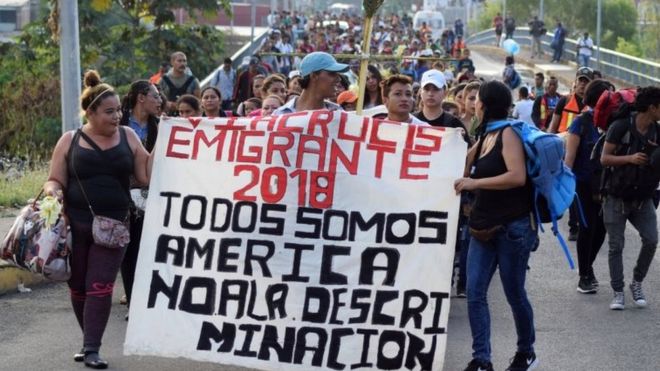 VIACRUCIS
EMIGRANTE
2018
TODOS SOMOS
AMERICA
NO.A.LA.DESCRI
MINACION